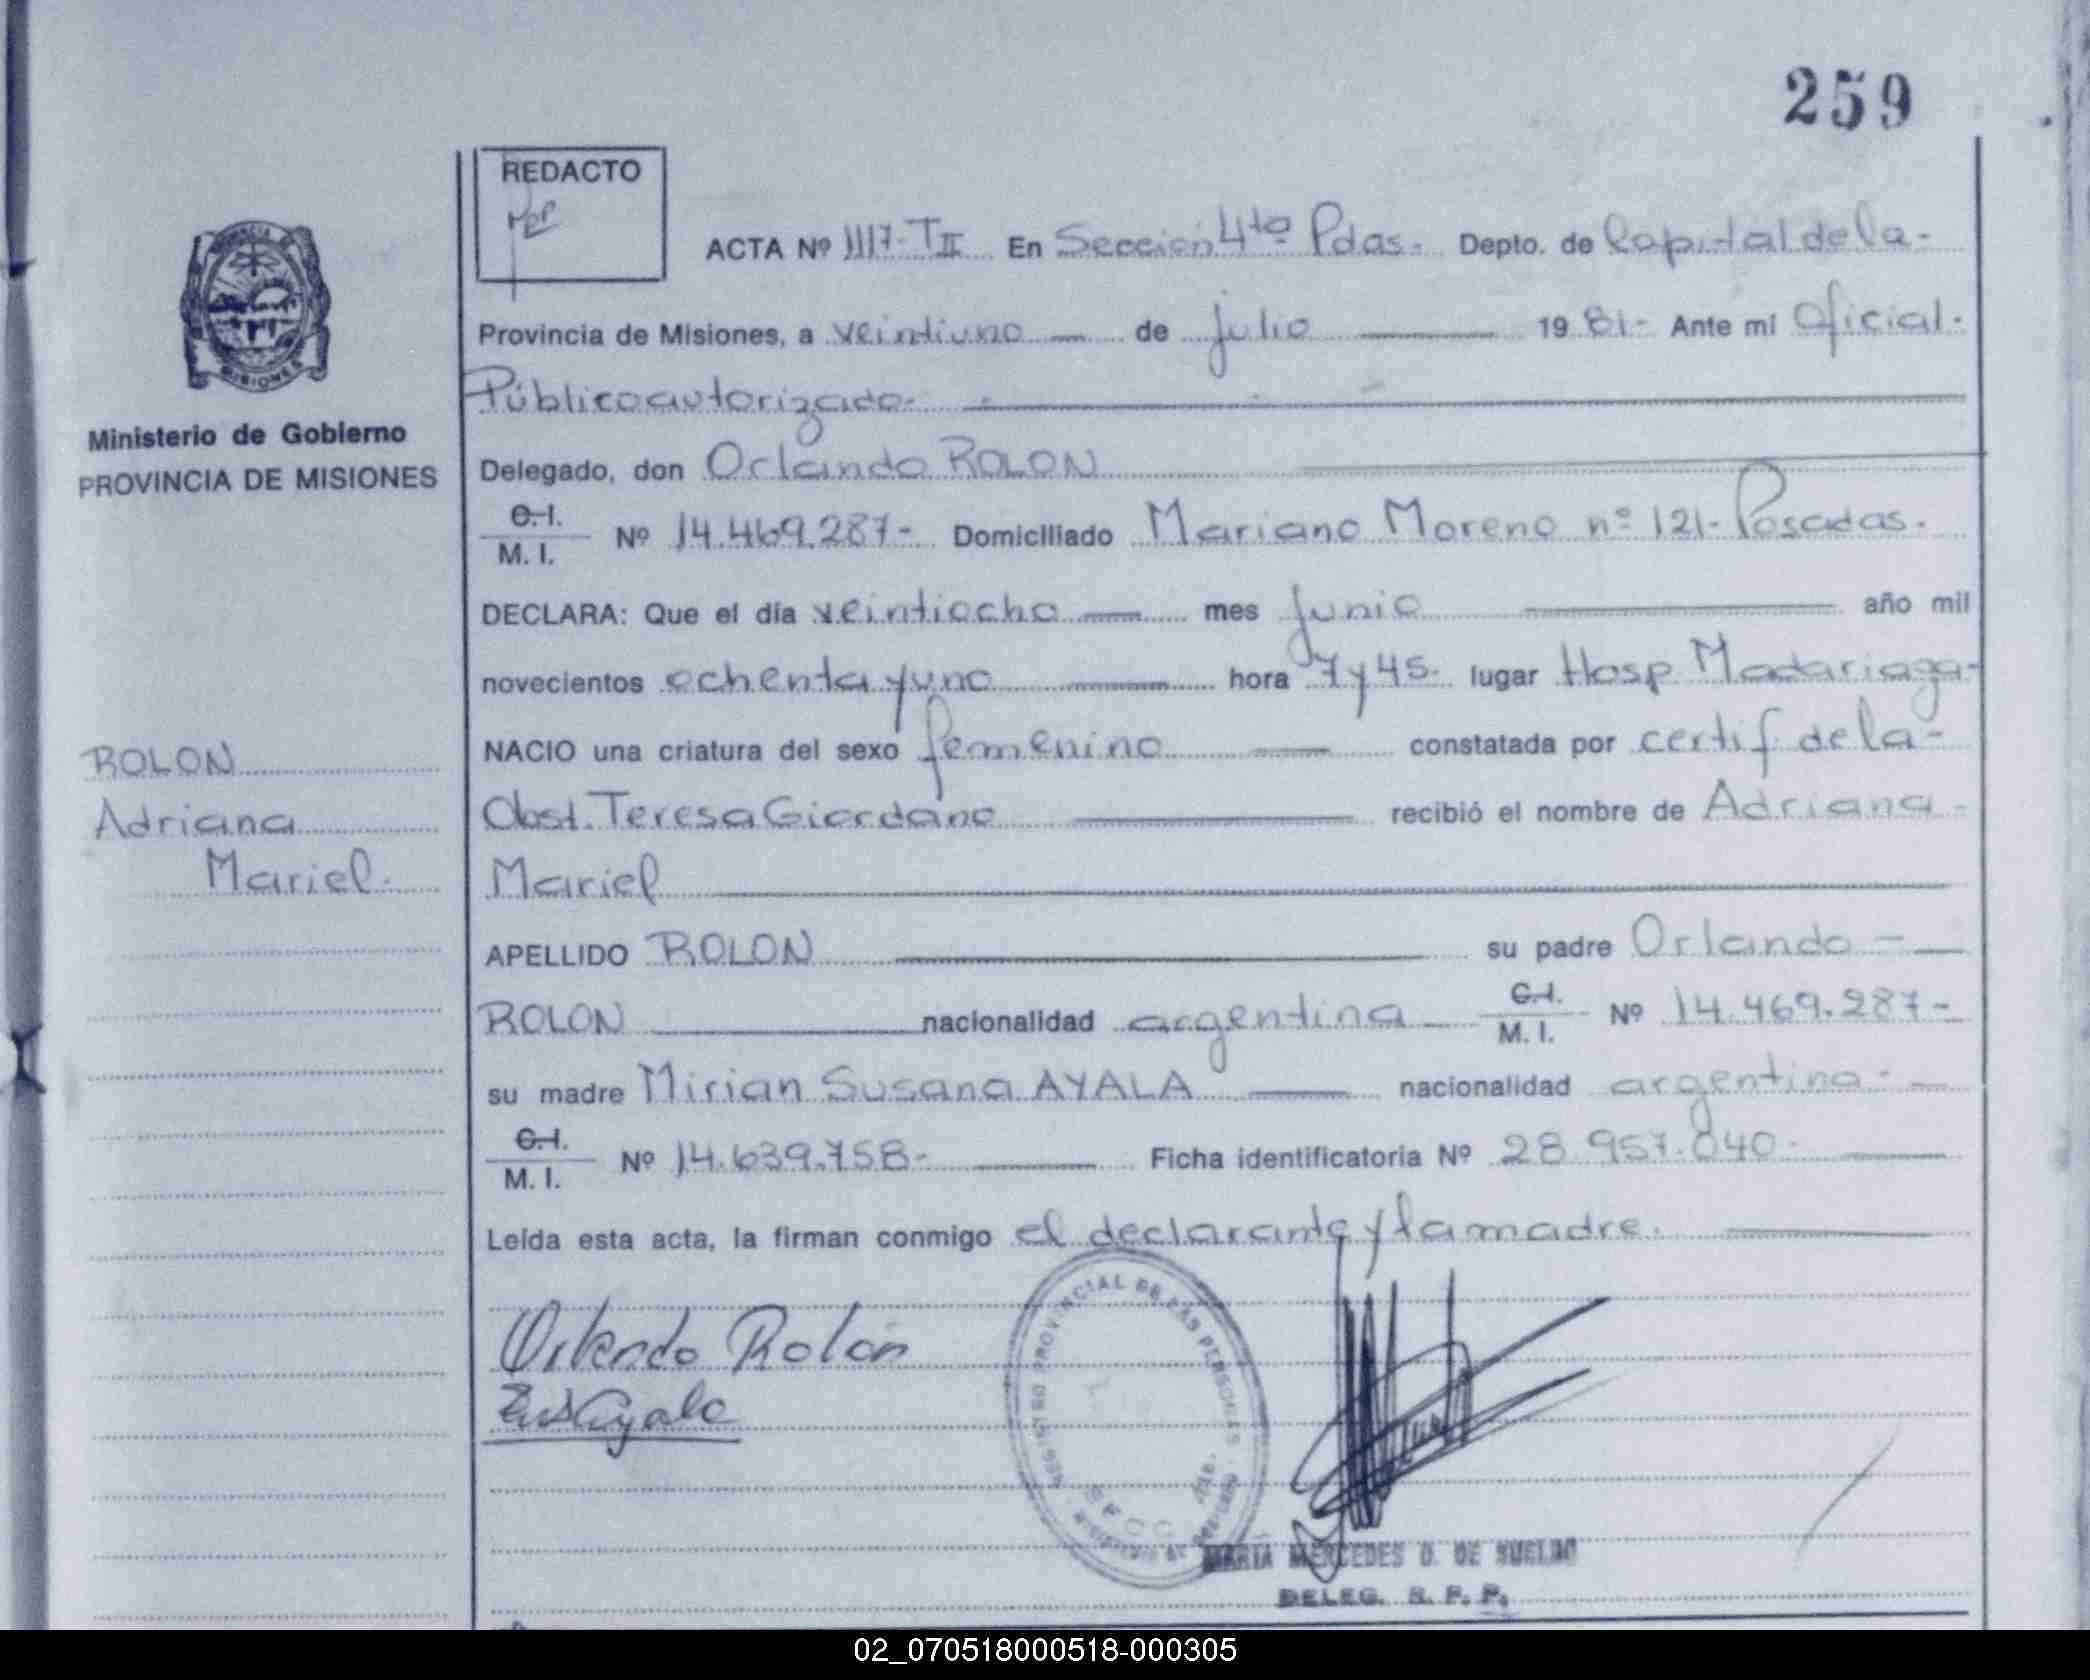 259
REDACTO
ACTA Nº 1117-T II En Sección 4ta Pdas. Depto. de Capital de la-
Provincia de Misiones, a veintiuno de julio 1981- Ante mi Oficial.
Público autorizado.
Ministerio de Gobierno
PROVINCIA DE MISIONES
Delegado, don Orlando ROLON
C.I.
M. I. Nº 14.469.287- Domiciliado Mariano Moreno nº 121- Posadas.
DECLARA: Que el día veintiocho mes junio año mil
novecientos ochenta y uno hora 7 y 45- lugar Hosp Madariaga-
NACIO una criatura del sexo femenino constatada por certif. de la-
Obst. Teresa Giordano recibió el nombre de Adriana-
Mariel
ROLON
Adriana
Mariel.
APELLIDO ROLON su padre Orlando-
ROLON nacionalidad argentina C.I.
M. I. Nº 14.469.287-
su madre Mirian Susana AYALA nacionalidad argentina-
C.I.
M. I. Nº 14.639.758- Ficha identificatoria Nº 28.957.040-
Leida esta acta, la firman conmigo el declarante y la madre.
Orlando Rolón
Ayala
REGISTRO PROVINCIAL DE LAS PERSONAS
MARIA MERCEDES D. DE SUELDO
DELEG. R. P. P.
02_070518000518-000305